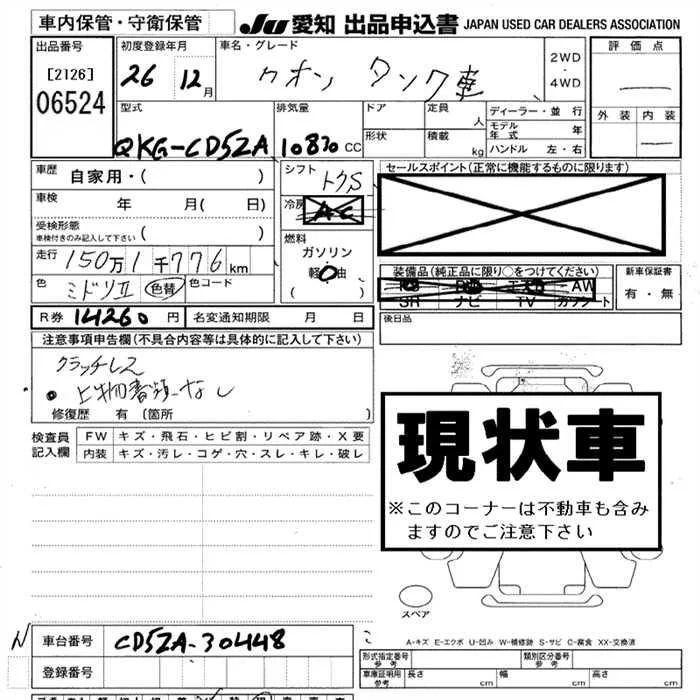 車内保管・守衛保管
JU 愛知 出品申込書 JAPAN USED CAR DEALERS ASSOCIATION
出品番号
[2126]
06524
初度登録年月
26 12月
車名・グレード
クオン タンク車
2WD
・
4WD
評価点
外装 内装
型式
QKG-CD5ZA
排気量
10830 CC
ドア
形状
定員 人
積載 kg
ディーラー・並行
モデル年式 年
ハンドル 左・右
車歴 自家用・( )
車検 年 月( 日)
受検形態
車検付きのみ記入して下さい ( )
走行 150万1千776km
色 ミドリⅡ 色替 色コード
シフト トクS
冷房 AC
燃料
ガソリン
軽油
( )
セールスポイント(正常に機能するものに限ります)
装備品(純正品に限り○をつけてください)
AW
SR ナビ TV カワシート
新車保証書
有・無
R券 14260円 名変通知期限 月 日
後日品
注意事項申告欄(不具合内容等は具体的に記入して下さい)
クラッチレス
上物書類なし
修復歴 有(箇所 )
検査員記入欄
FW キズ・飛石・ヒビ割・リペア跡・X要
内装 キズ・汚レ・コゲ・穴・スレ・キレ・破レ
現状車
※このコーナーは不動車も含み
ますのでご注意下さい
スペア
A-キズ E-エクボ U-凹み W-補修跡 S-サビ C-腐食 XX-交換済
N
車台番号 CD5ZA-30448
登録番号
形式指定番号 参考
類別区分番号 参考
車庫証明用 参考 長さ cm 幅 cm 高さ cm